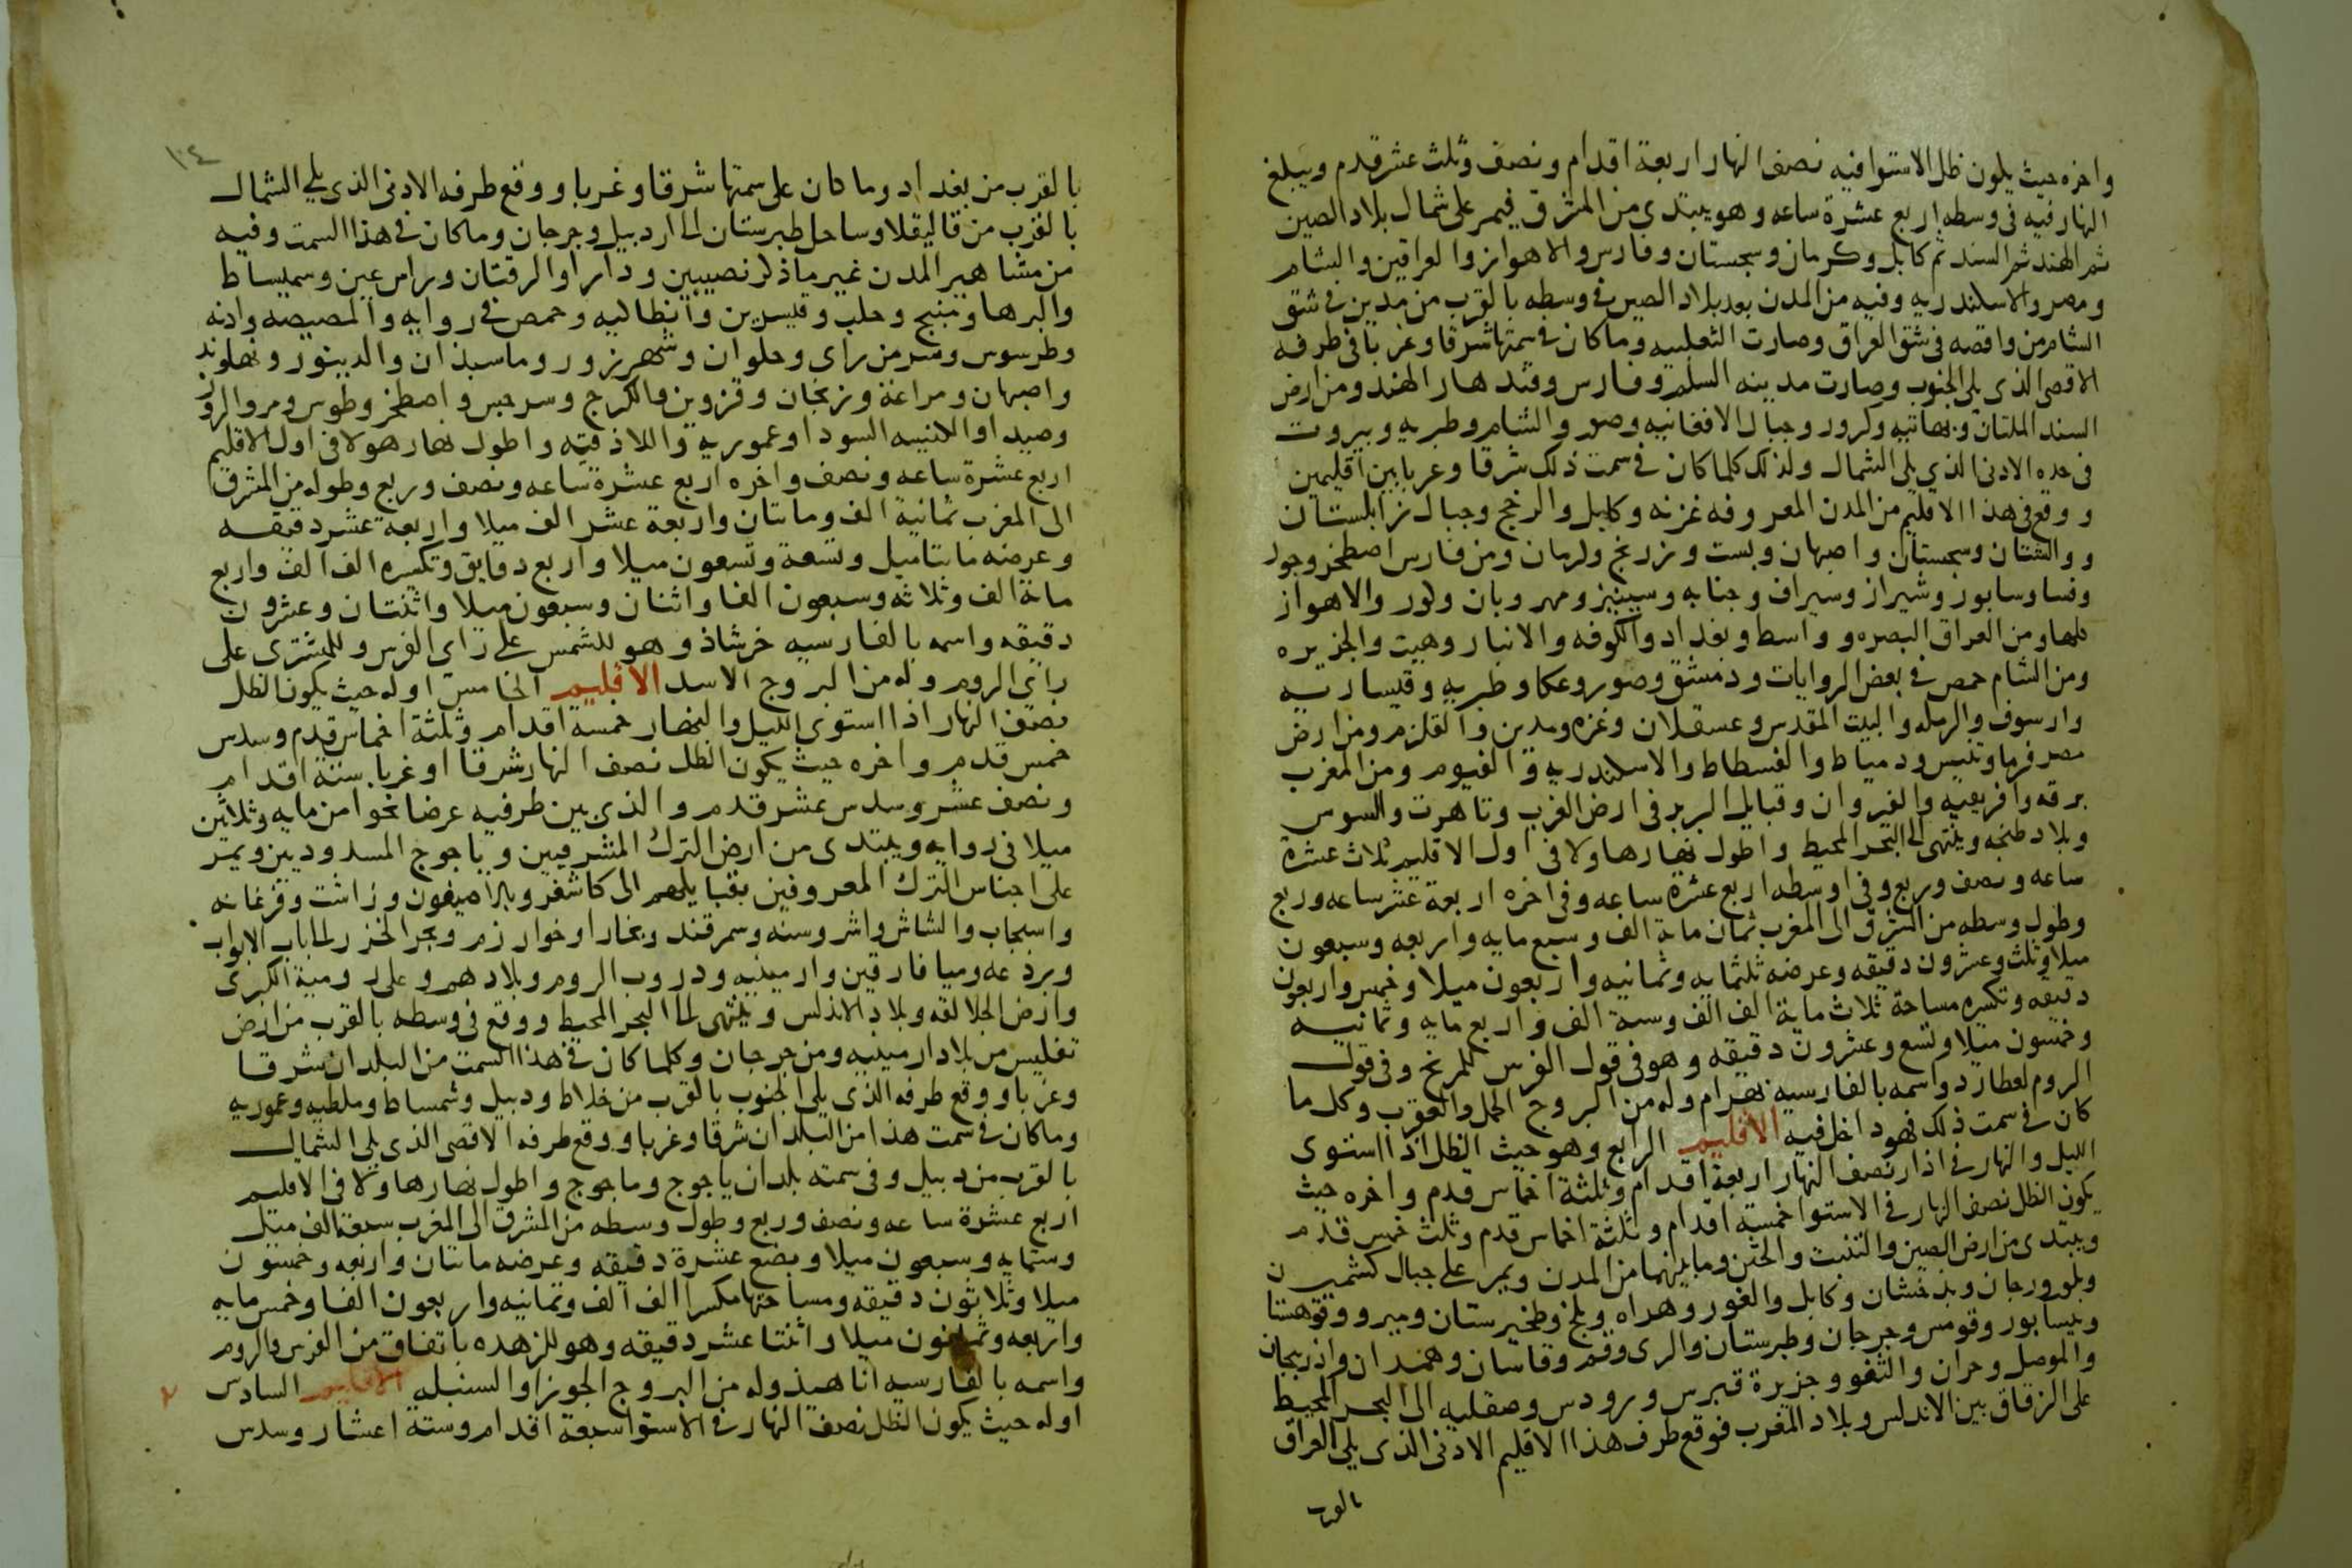 واخره حيث يكون ظل الاستوا فيه نصف النهار اربعة اقدام ونصف وثلث عشر قدم ويبلغ
النهار فيه في وسطه اربع عشرة ساعه وهو يبتدي من المشرق فيمر على شمال بلاد الصين
ثم الهند ثم السند ثم كابل وكرمان وسجستان وفارس والاهواز والعراقين والشام
ومصر والاسكندريه وفيه من المدن بعد بلاد الصين في وسطه بالقرب من مدين في شق
الشام من واقصه في شق العراق وصارت الثعلبيه وماكان في سمتها شرقا وغربا في طرفه
الاقصى الذي يلي الجنوب وصارت مدينه السلم وفارس وقندهار الهند ومن ارض
السند الملتان ونهاتيه وكرور وجبال الافغانيه وصور والشام وطبريه وبيروت
في حده الادنى الذي يلي الشمال ولذلك كلما كان في سمت ذلك شرقا وغربا بين اقليمين
ووقع في هذا الاقليم من المدن المعروفه غزنه وكابل والرخج وجبال زابلستان
ووالشتان وسجستان واصبهان وبست وزرنج وكرمان ومن فارس اصطخر وجور
وفسا وسابور وشيراز وسيراف وجنابه وسينيز ومهروبان وكور والاهواز
كلها ومن العراق البصره وواسط وبغداد والكوفه والانبار وهيت والجزيره
ومن الشام حمص في بعض الروايات ودمشق وصور وعكا وطبريه وقيساريه
وارسوف والرمله والبيت المقدس وعسقلان وغزه ومدين والقلزم ومن ارض
مصر فرما وتنيس ودمياط والفسطاط والاسكندريه والفيوم ومن المغرب
برقه وافريقيه والقيروان وقبايل البربر في ارض الغرب وتاهرت والسوس
وبلاد طنجه وينتهي الى البحر المحيط واطول نهارهاولا في اول الاقليم ثلاث عشرة
ساعه ونصف وربع وفي اوسطه اربع عشرة ساعه وفي اخره اربعة عشر ساعه وربع
وطول وسطه من الشرق الى المغرب ثمان ماية الف وسبع مايه واربعه وسبعون
ميلا وثلث وعشرون دقيقه وعرضه ثلثمايه وثمانيه واربعون ميلا وخمس واربعون
دقيقه وتكسيره مساحة ثلاث ماية الف الف وستة الف واربع مايه وثمانيه
وخمسون ميلا وتسع وعشرون دقيقه وهو في قول الفرس للمريخ وفي قول
الروم لعطارد واسمه بالفارسيه بهرام وله من البروج الحمل والعقرب وكل ما
كان في سمت ذلك فهو داخل فيه الاقليم الرابع وهو حيث الظل اذا استوى
الليل والنهار في اذار نصف النهار اربعة اقدام وثلثة اخماس قدم واخره حيث
يكون الظل نصف النهار في الاستوا خمسة اقدام وثلثة اخماس قدم وثلث خمس قدم
ويبتدي من ارض الصين والتبت والختن وما بينهما من المدن ويمر على جبال كشمير
وبلور ورجان وبذخشان وكابل والغور وهراه وبلخ وطخيرستان ومرو وقوهستان
ونيسابور وقومس وجرجان وطبرستان والري وقم وقاسان وهمدان واذربيجان
والموصل وحران والثغو وجزيرة قبرس ورودس وصقليه الى البحر المحيط
على الزقاق بين الاندلس وبلاد المغرب فوقع طرف هذا الاقليم الادنى الذي يلي العراق
بالقرب
١٠٤
بالقرب من بغداد وما كان على سمتها شرقا وغربا ووقع طرفه الادنى الذي يلي الشمال
بالقرب من قاليقلا وساحل طبرستان الى اردبيل وجرجان وماكان في هذا السمت وفيه
من مشاهير المدن غير ماذكر نصيبين ودارا والرقتان وراس عين وسميساط
والرها ومنبج وحلب وقنسرين وانطاكيه وحمص في روايه والمصيصه واذنه
وطرسوس وسر من راى وحلوان وشهرزور وماسبذان والدينور ونهاوند
واصبهان ومراغة وزنجان وقزوين والكرج وسرخس واصطخر وطوس ومرو الروذ
وصيدا والكنيسه السودا وعموريه واللاذقيه واطول نهار هولا في اول الاقليم
اربع عشرة ساعه ونصف واخره اربع عشرة ساعه ونصف وربع وطوله من المشرق
الى المغرب ثمانية الف ومائتان واربعة عشر الف ميلا واربعة عشر دقيقه
وعرضه مائتا ميل وتسعة وتسعون ميلا واربع دقايق وتكسيره الف الف واربع
ماية الف وثلاثه وسبعون الفا واثنان وسبعون ميلا واثنتان وعشرون
دقيقه واسمه بالفارسيه خرشاذ وهو للشمس على راي الفرس وللمشتري على
راي الروم وله من البروج الاسد الاقليم الخامس اوله حيث يكون الظل
نصف النهار اذا استوى الليل والنهار خمسة اقدام وثلثة اخماس قدم وسدس
خمس قدم واخره حيث يكون الظل نصف النهار شرقا او غربا ستة اقدام
ونصف عشر وسدس عشر قدم والذي بين طرفيه عرضا نحوا من مايه وثلاثين
ميلا في روايه ويبتدي من ارض الترك المشرقيين وياجوج المسدودين ويمر
على اجناس الترك المعروفين بقبايلهم الى كاشغر وبلاصيغون وراشت وفرغانه
واسبجاب والشاش واشروسنه وسمرقند وبخارا وخوارزم وبحر الخزر الى باب الابواب
وبرذعه وميافارقين وارمينيه ودروب الروم وبلادهم وعلى رومية الكبرى
وارض الجلالقه وبلاد الاندلس وينتهي الى البحر المحيط ووقع في وسطه بالقرب من ارض
تفليس من بلاد ارمينيه ومن جرجان وكلما كان في هذا السمت من البلدان شرقا
وغربا ووقع طرفه الذي يلي الجنوب بالقرب من خلاط ودبيل وشمساط وملطيه وعموريه
وماكان في سمت هذا من البلدان شرقا وغربا ووقع طرفه الاقصى الذي يلي الشمال
بالقرب من دبيل وفي سمته بلدان ياجوج وماجوج واطول نهارهاولا في الاقليم
اربع عشرة ساعه ونصف وربع وطول وسطه من المشرق الى المغرب سبعة الف ميل
وستمايه وسبعون ميلا وبضع عشرة دقيقه وعرضه مائتان واربعه وخمسون
ميلا وثلاثون دقيقه ومساحتها مكسرا الف الف وثمانيه واربعون الفا وخمس مايه
واربعه وثمانون ميلا واثنتا عشر دقيقه وهو للزهده باتفاق من الفرس والروم
واسمه بالفارسيه اناهيذ وله من البروج الجوزا والسنبله الاقليم السادس
اوله حيث يكون الظل نصف النهار في الاستوا سبعة اقدام وستة اعشار وسدس